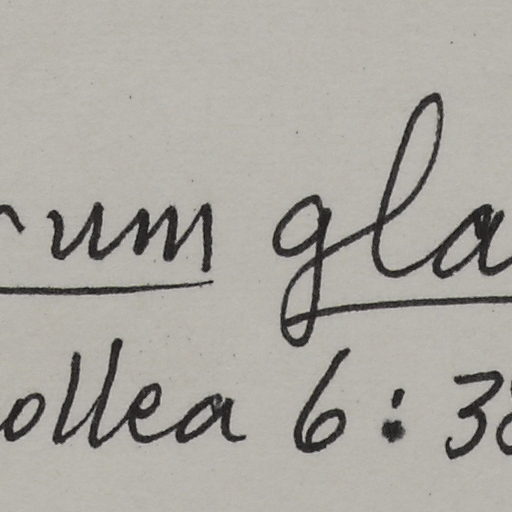 rum gla
ollea 6: 38